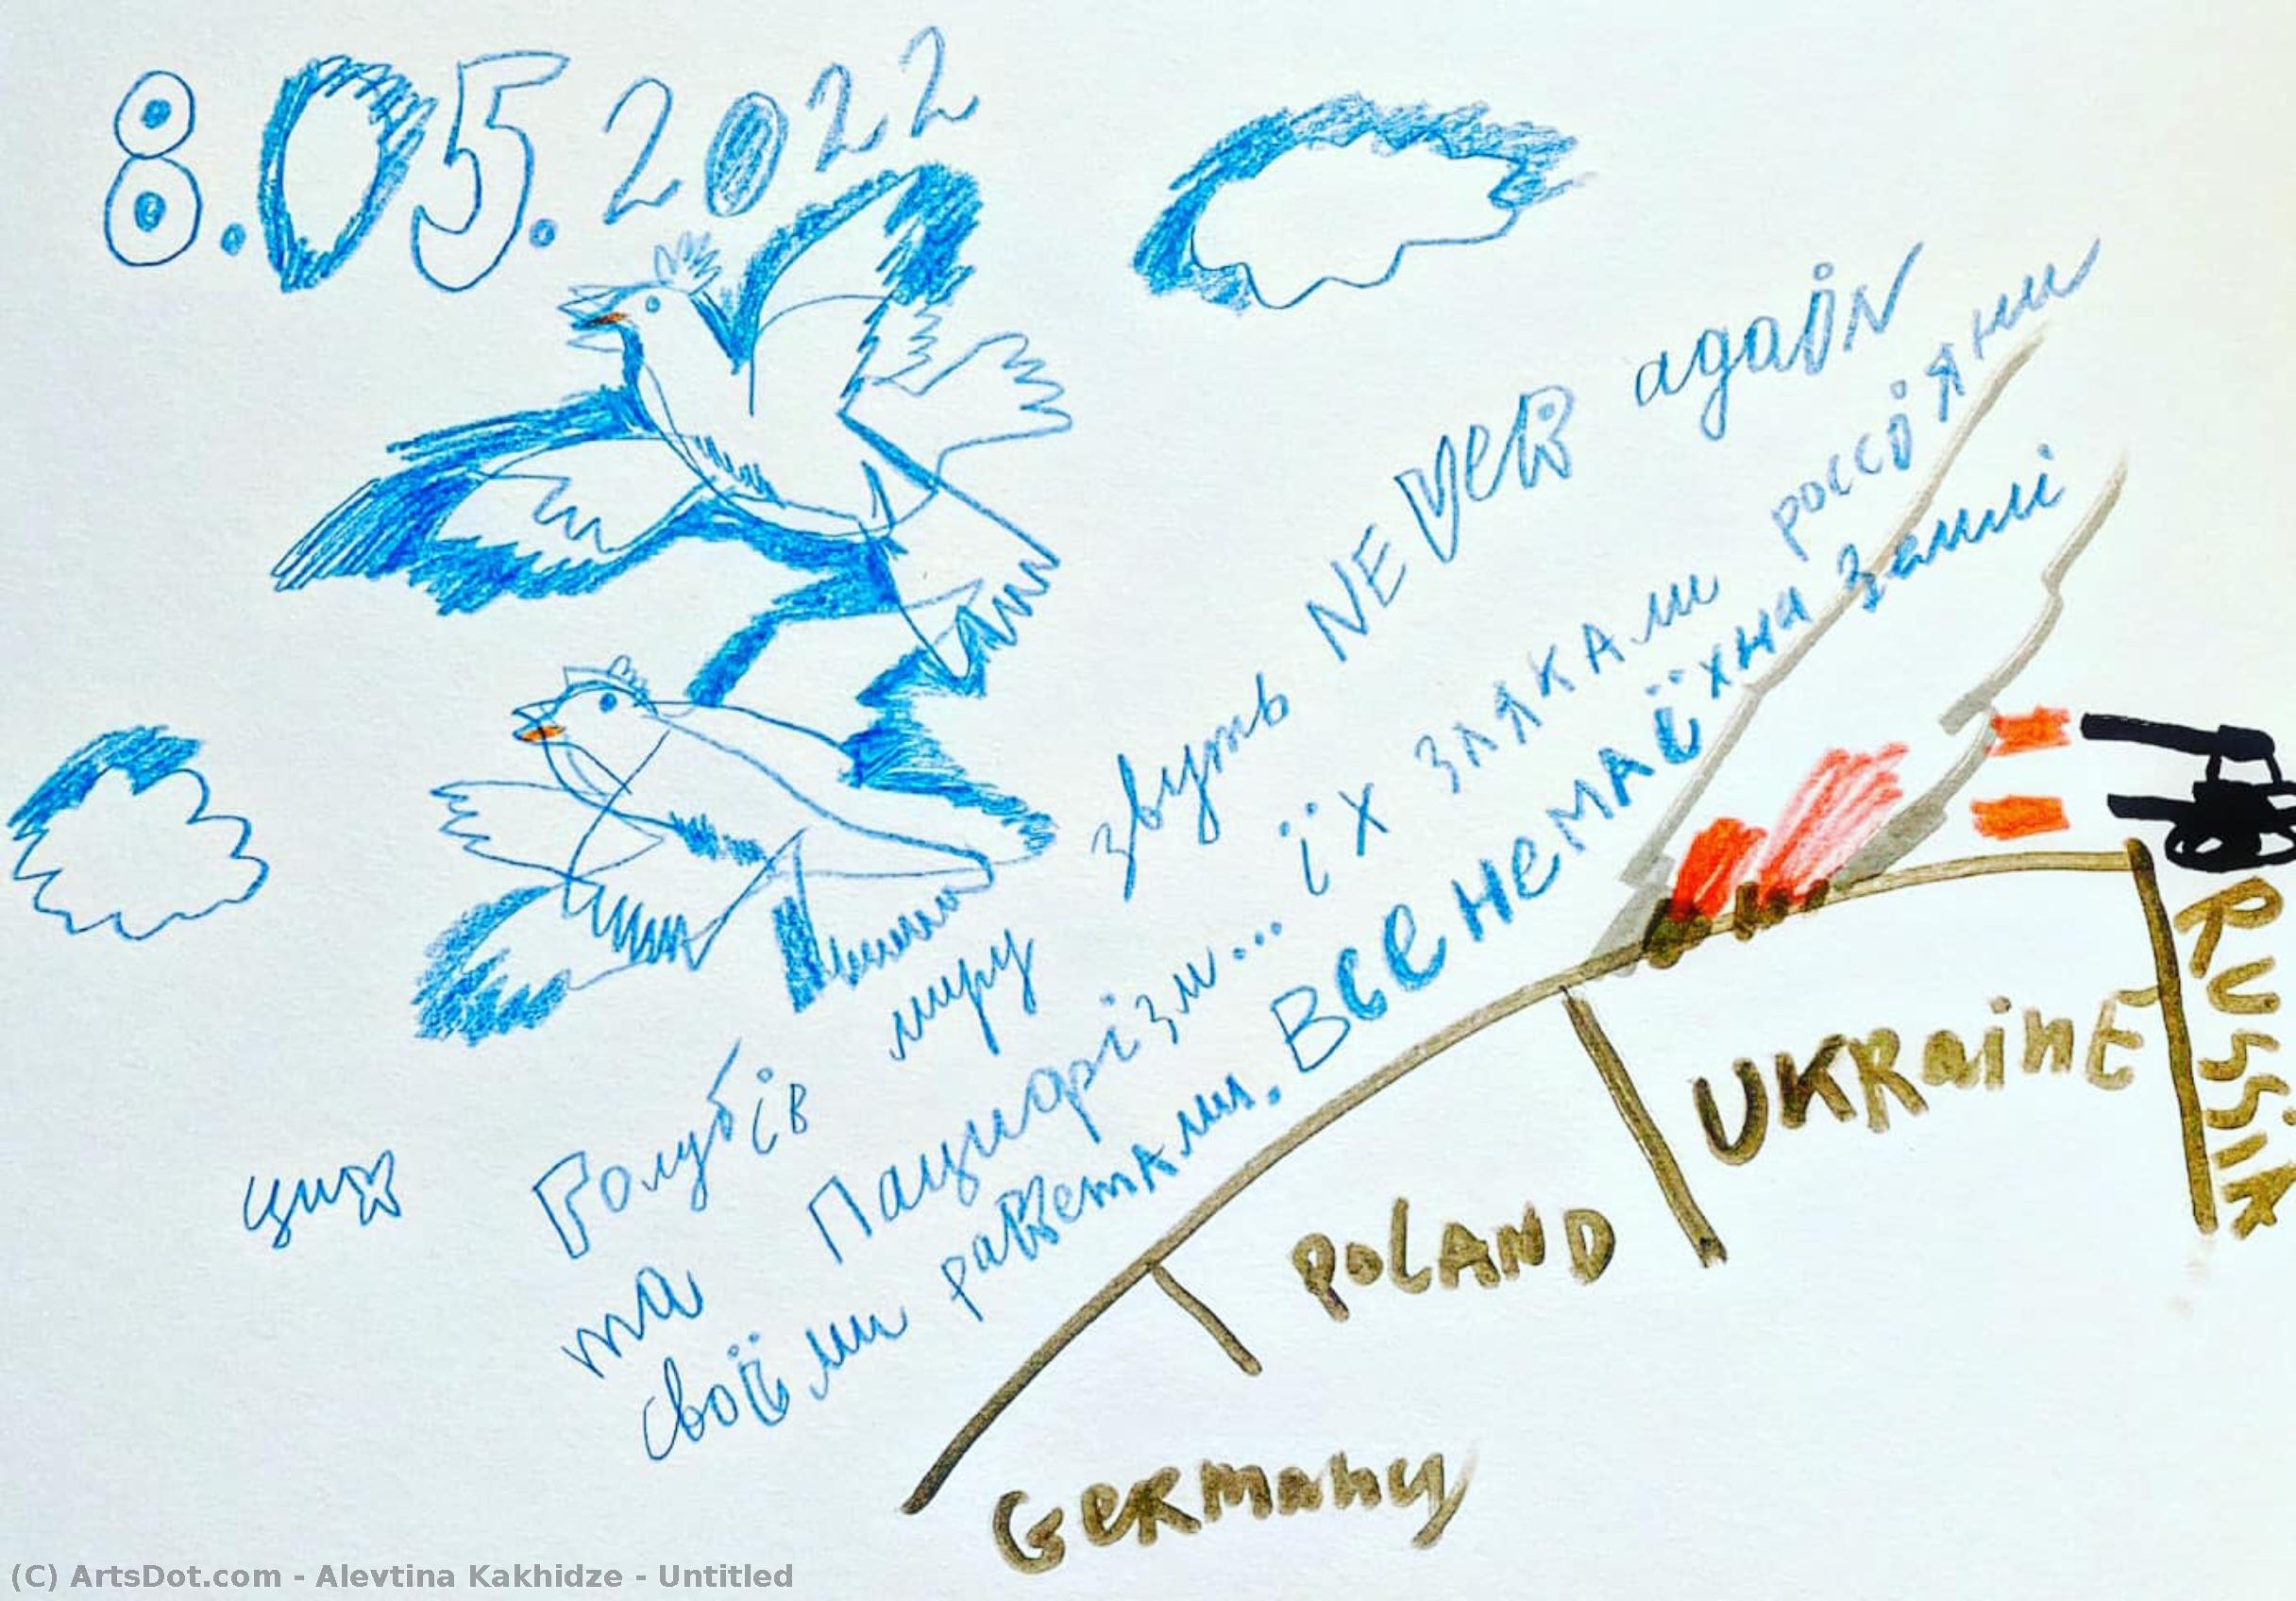 8.05.2022
цих Голубів миру звуть NEVER again
та Пацифізм... їх злякали россіяни
своїми ракетами. Все нема їх на землі
RUSSIA
UKRAINE
POLAND
GERMANY
(C) ArtsDot.com - Alevtina Kakhidze - Untitled